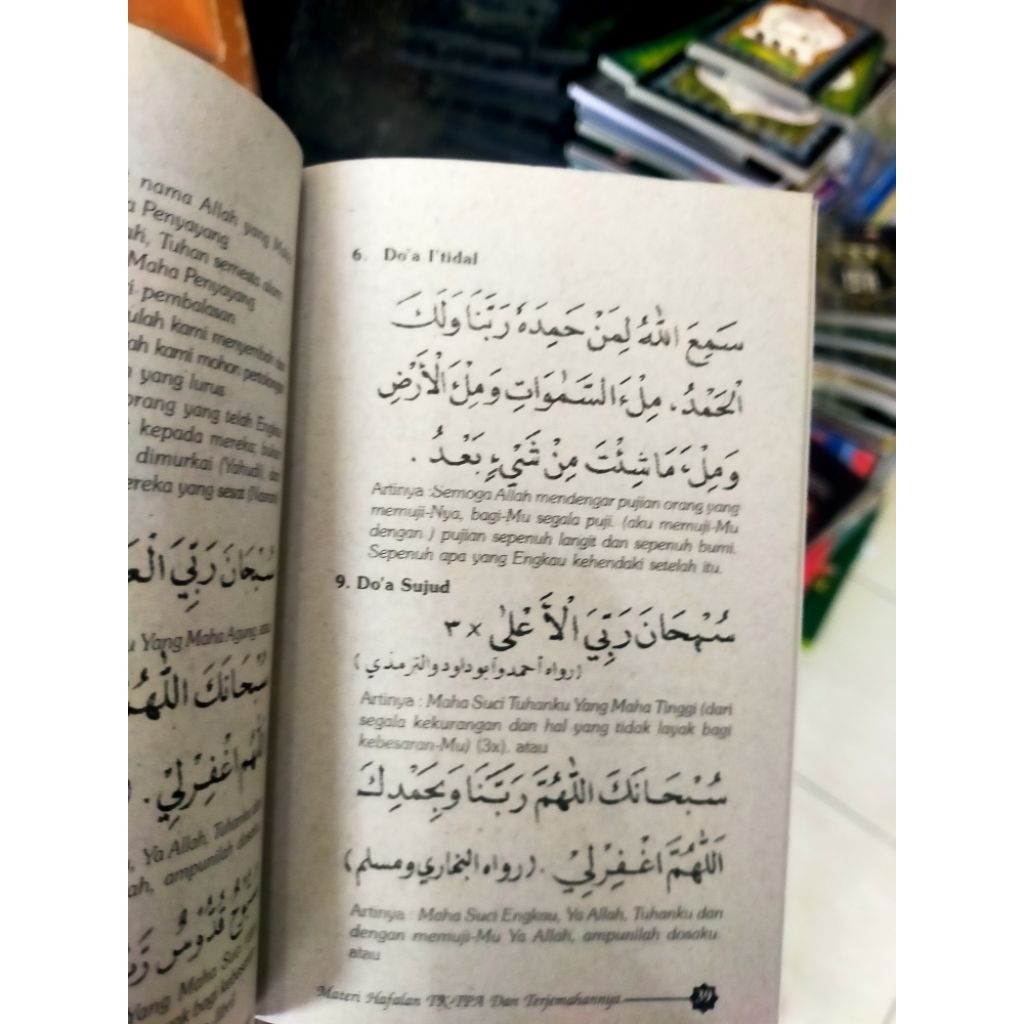 nama Allah yang Maha
Penyayang
Tuhan semesta alam
Maha Penyayang
pembalasan
kami menyembah dan
kami mohon pertolongan
yang lurus
orang yang telah Engkau
kepada mereka; bukan
dimurkai (Yahudi), dan
mereka yang sesat (Nasrani)
سُبْحَانَ رَبِّيَ
Yang Maha Agung, atau
سُبْحَانَكَ اللّٰهُمَّ
اغْفِرْلِيْ .
Ya Allah, Tuhanku
ampunilah dosaku
سُبُّوحٌ قُدُّوْسٌ
Yang Maha Suci
6. Do'a I'tidal
سَمِعَ اللّٰهُ لِمَنْ حَمِدَهُ رَبَّنَا وَلَكَ
الْحَمْدُ، مِلْءَ السَّمٰوَاتِ وَمِلْءَ الْأَرْضِ
وَمِلْءَ مَاشِئْتَ مِنْ شَيْءٍ بَعْدُ .
Artinya :Semoga Allah mendengar pujian orang yang
memuji-Nya, bagi-Mu segala puji. (aku memuji-Mu
dengan ) pujian sepenuh langit dan sepenuh bumi.
Sepenuh apa yang Engkau kehendaki setelah itu.
9. Do'a Sujud
سُبْحَانَ رَبِّيَ الْأَعْلٰى × ٣
(رواه أحمد وأبو داود والترمذي)
Artinya : Maha Suci Tuhanku Yang Maha Tinggi (dari
segala kekurangan dan hal yang tidak layak bagi
kebesaran-Mu) (3x). atau
سُبْحَانَكَ اللّٰهُمَّ رَبَّنَا وَبِحَمْدِكَ
اَللّٰهُمَّ اغْفِرْلِيْ . (رواه البخاري ومسلم)
Artinya : Maha Suci Engkau, Ya Allah, Tuhanku dan
dengan memuji-Mu Ya Allah, ampunilah dosaku.
atau
Materi Hafalan TK-TPA Dan Terjemahannya 39